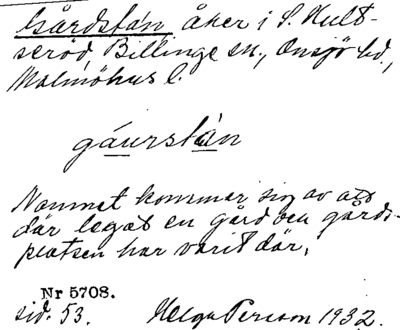 Gårdsfån, åker i S. Hult-
seröd, Billinge sn., Onsjö hd.,
Malmöhus l.
gáursfàn
Namnet kommer sig av att
där legat en gård och gårds-
platsen har varit där.
Nr 5708.
sid. 53. Helga Person 1932.